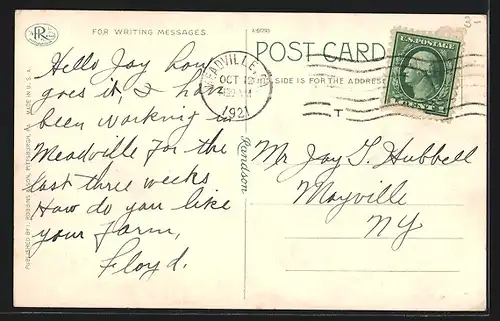 FOR WRITING MESSAGES.
Hello Jay how
goes it, I have
been working in
Meadville for the
last three weeks
How do you like
your farm,
Floyd.
MADE IN U. S. A.
PITTSBURGH, PA.
PUBLISHED BY I. ROBBINS & SON,
R
POST CARD
THIS SIDE IS FOR THE ADDRESS
MEADVILLE
OCT 12
1921
U.S. POSTAGE
1 CENT 1
T
Mr Jay T. Hubbell
Mayville
NY